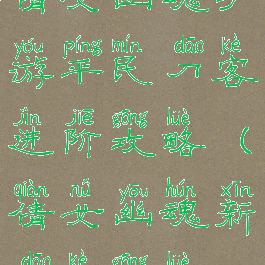 yóu píng mín dāo kè
游平民刀客
jìn jiē gōng lüè
进阶攻略（
qiàn nǚ yōu hún xīn
倩女幽魂新
dāo kè gōng lüè